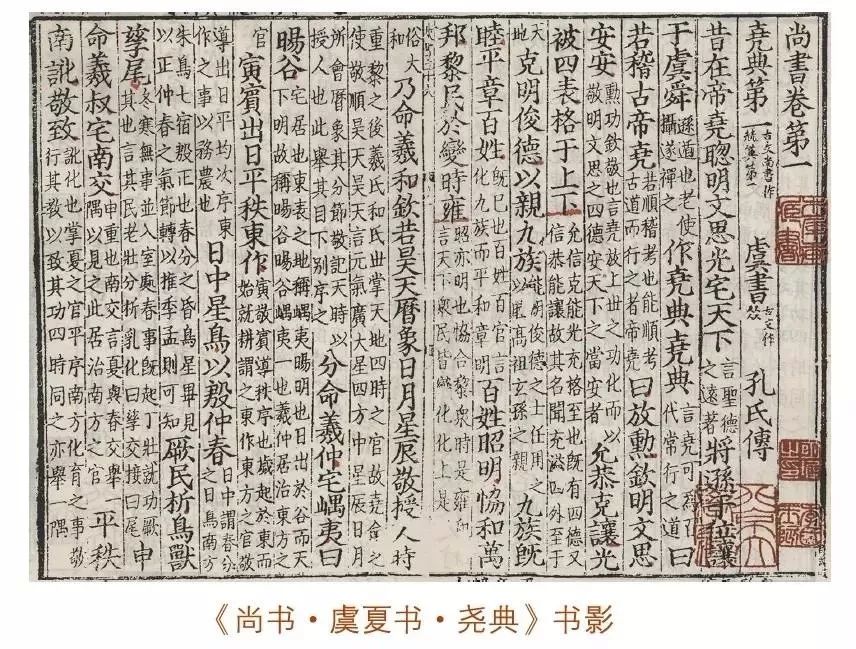 尚書卷第一
堯典第一 虞書 孔氏傳
昔在帝堯聰明文思光宅天下言聖德之遠著將遜于位讓
于虞舜遜遁也老使攝遂禪之作堯典堯典言堯可為百代常行之道曰
若稽古帝堯若順稽考也能順考古道而行之者帝堯曰放勳欽明文思
安安勳功欽敬也言堯放上世之功化而以敬明文思之四德安天下之當安者允恭克讓光
被四表格于上下允信克能光充格至也既有四德又信恭能讓故其名聞充溢四外至于
天地克明俊德以親九族能明俊德之士任用之以睦高祖玄孫之親九族既
睦平章百姓既已也百姓百官言化九族而平和章明百姓昭明恊和萬
邦黎民於變時雍昭亦明也恊合黎眾時是雍和言天下眾民皆化上是
俗大和乃命羲和欽若昊天曆象日月星辰敬授人時
重黎之後羲氏和氏世掌天地四時之官故堯命之使敬順昊天昊天言元氣廣大星四方中星辰日月
所會曆象其分節敬記天時以授人也此舉其目下別序之分命羲仲宅嵎夷曰
暘谷宅居也東表之地稱嵎夷暘明也日出於谷而天下明故稱暘谷暘谷嵎夷一也羲仲居治東方之
官寅賓出日平秩東作寅敬賓導秩序也歲起於東而始就耕謂之東作東方之官敬
導出日平均次序東作之事以務農也日中星鳥以殷仲春日中謂春分之日鳥南方
朱鳥七宿殷正也春分之昏鳥星畢見以正仲春之氣節轉以推季孟則可知厥民析鳥獸
孳尾冬寒無事並入室處春事既起丁壯就功厥其也言其民老壯分析乳化曰孳交接曰尾申
命羲叔宅南交申重也南交言夏與春交舉一隅以見之此居治南方之官平秩
南訛敬致訛化也掌夏之官平序南方化育之事敬行其教以致其功四時同之亦舉一隅
《尚书·虞夏书·尧典》书影